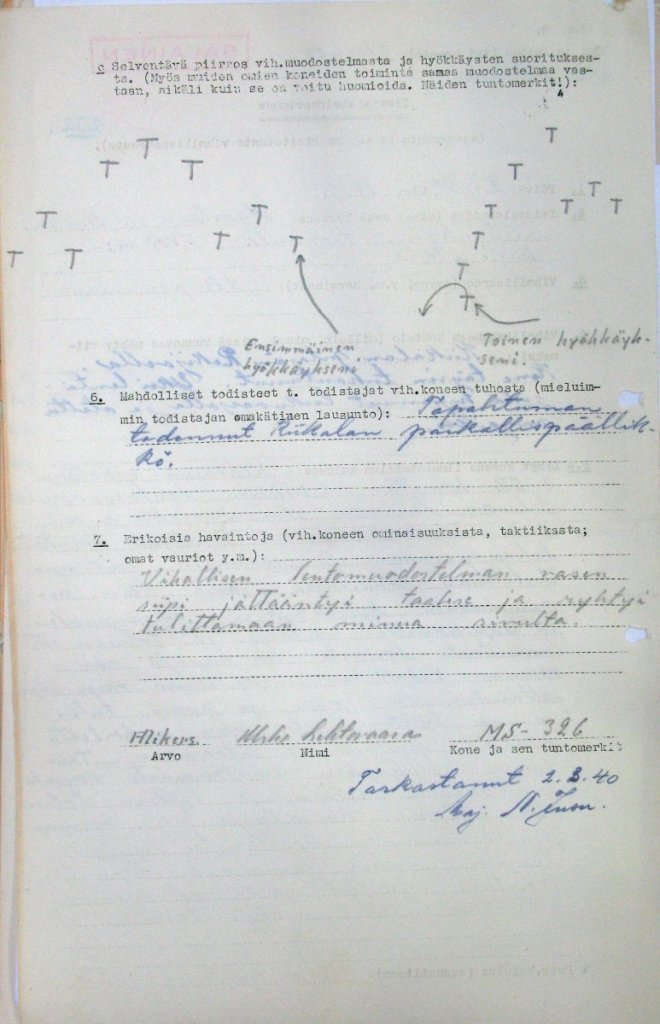 c Selventävä piirros vih.muodostelmasta ja hyökkäysten suorituksesta. (Myös muiden omien koneiden toiminta samaa muodostelmaa vastaan, sikäli kuin se on voitu huomioida. Näiden tuntomerkit!):
Ensimmäinen
hyökkäykseni
Toinen hyökkäyk-
seni.
6. Mahdolliset todisteet t. todistajat vih.koneen tuhosta (mieluim-
min todistajan omakätinen lausunto): Tapahtuman
todennut paikallispäällik-
kö.
7. Erikoisia havaintoja (vih.koneen ominaisuuksista, taktiikasta;
omat vauriot y.m.):
Vihollisen lentomuodostelman vasen
siipi jättääntyi taakse ja ryhtyi
tulittamaan minua sivulta.
Urho Lehtovaara MS-326
Arvo Nimi Kone ja sen tuntomerkit
Tarkastanut 2.3.40
Maj.